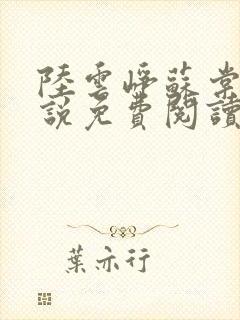 陸雲崢蘇棠
說免費閱讀
葉亦行